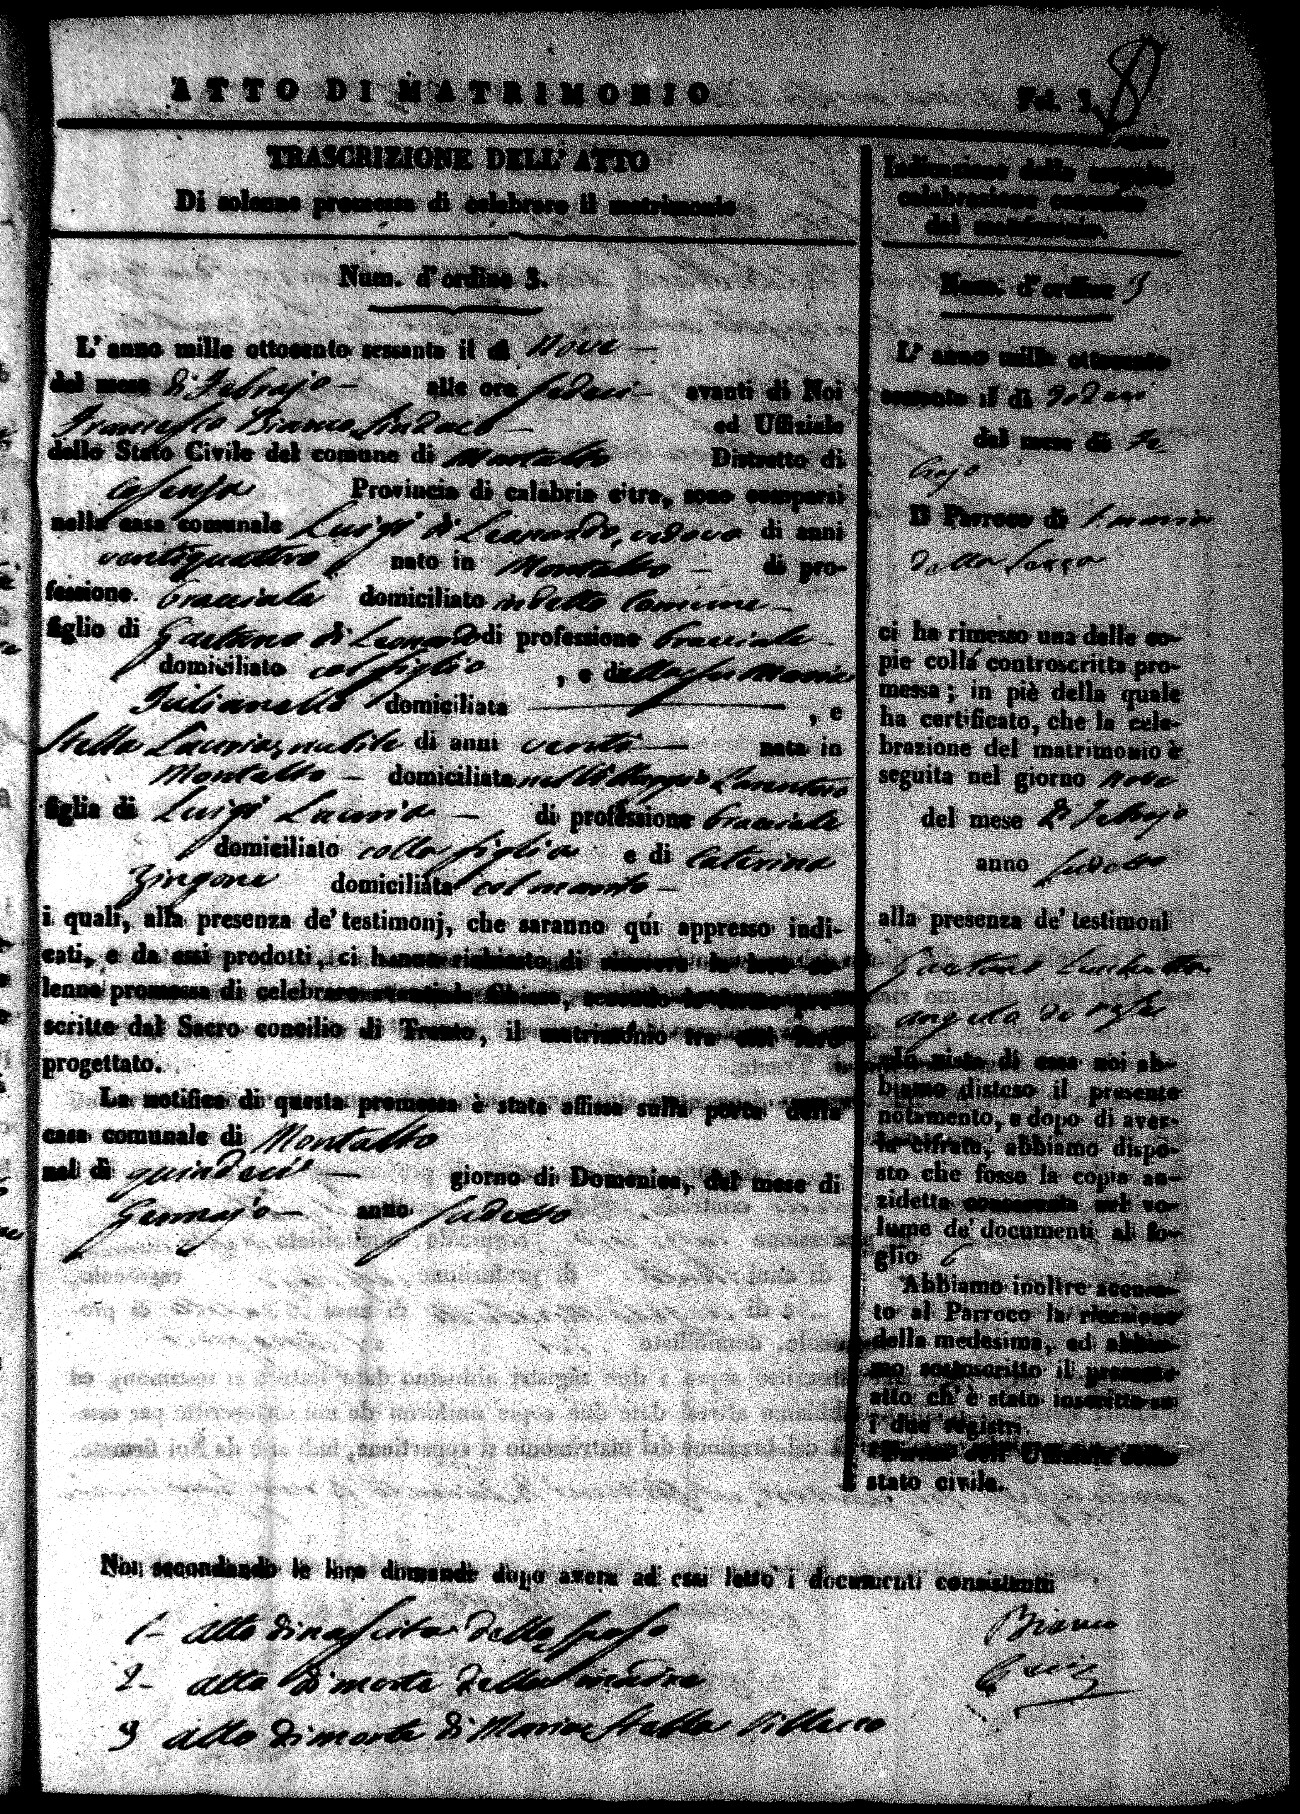 ATTO DI MATRIMONIO
Fol. 3. 8
TRASCRIZIONE DELL' ATTO
Di solenne promessa di celebrare il matrimonio
Num. d'ordine 3.
L' anno mille ottocento sessanta il dì Nove —
del mese di Febrajo — alle ore sedeci — avanti di Noi
Francesco Bianco Sindaco — ed Uffiziale
dello Stato Civile del comune di Montalto Distretto di
Cosenza Provincia di calabria citra, sono comparsi
nella casa comunale Luigi di Leonardo, vedovo di anni
ventiquattro nato in Montalto — di pro-
fessione bracciale domiciliato in detto Comune —
figlio di Gaetano di Leonardo di professione bracciale —
domiciliato col figlio , e della fu Maria
Iulianello domiciliata — , e
Stella Lauria, nubile di anni venti — nata in
Montalto — domiciliata nel Villaggio
figlia di Luigi Lauria — di professione bracciale
domiciliato colla figlia e di Caterina
Zingone domiciliata col marito —
i quali, alla presenza de' testimonj, che saranno quì appresso indi-
cati, e da essi prodotti, ci hanno richiesto di ricevere la loro so-
lenne promessa di celebrare avanti la Chiesa, secondo le forme pre-
scritte dal Sacro concilio di Trento, il matrimonio tra essi loro
progettato.
La notifica di questa promessa è stata affissa sulla porta della
casa comunale di Montalto
nel dì quindeci — giorno di Domenica, del mese di
Gennajo — anno sudetto
Noi secondando le loro domande dopo avere ad essi letto i documenti consistenti
1- atto di nascita dello sposo
2- atto di morte della madre
3 atto di morte di Maria Stella
Indicazione della seguita
celebrazione canonica
del matrimonio.
Num. d'ordine 3
L' anno mille ottocento
sessanta il dì dodeci
del mese di Fe-
brajo
Il Parroco di S. Maria
della
ci ha rimesso una delle co-
pie colla controscritta pro-
messa; in piè della quale
ha certificato, che la cele-
brazione del matrimonio è
seguita nel giorno nove
del mese di Febrajo
anno sudetto
alla presenza de' testimoni
Gaetano
Angelo de
In visto di essa noi ab-
biamo disteso il presente
notamento, e dopo di aver-
la cifrata, abbiamo dispo-
sto che fosse la copia an-
zidetta conservata nel vo-
lume de' documenti al fo-
glio 6
Abbiamo inoltre accusa-
to al Parroco la ricezione
della medesima, ed abbia-
mo sottoscritto il presente
atto ch' è stato inscritto su
i due registri.
Firma dell' Uffiziale dello
stato civile.
Bianco